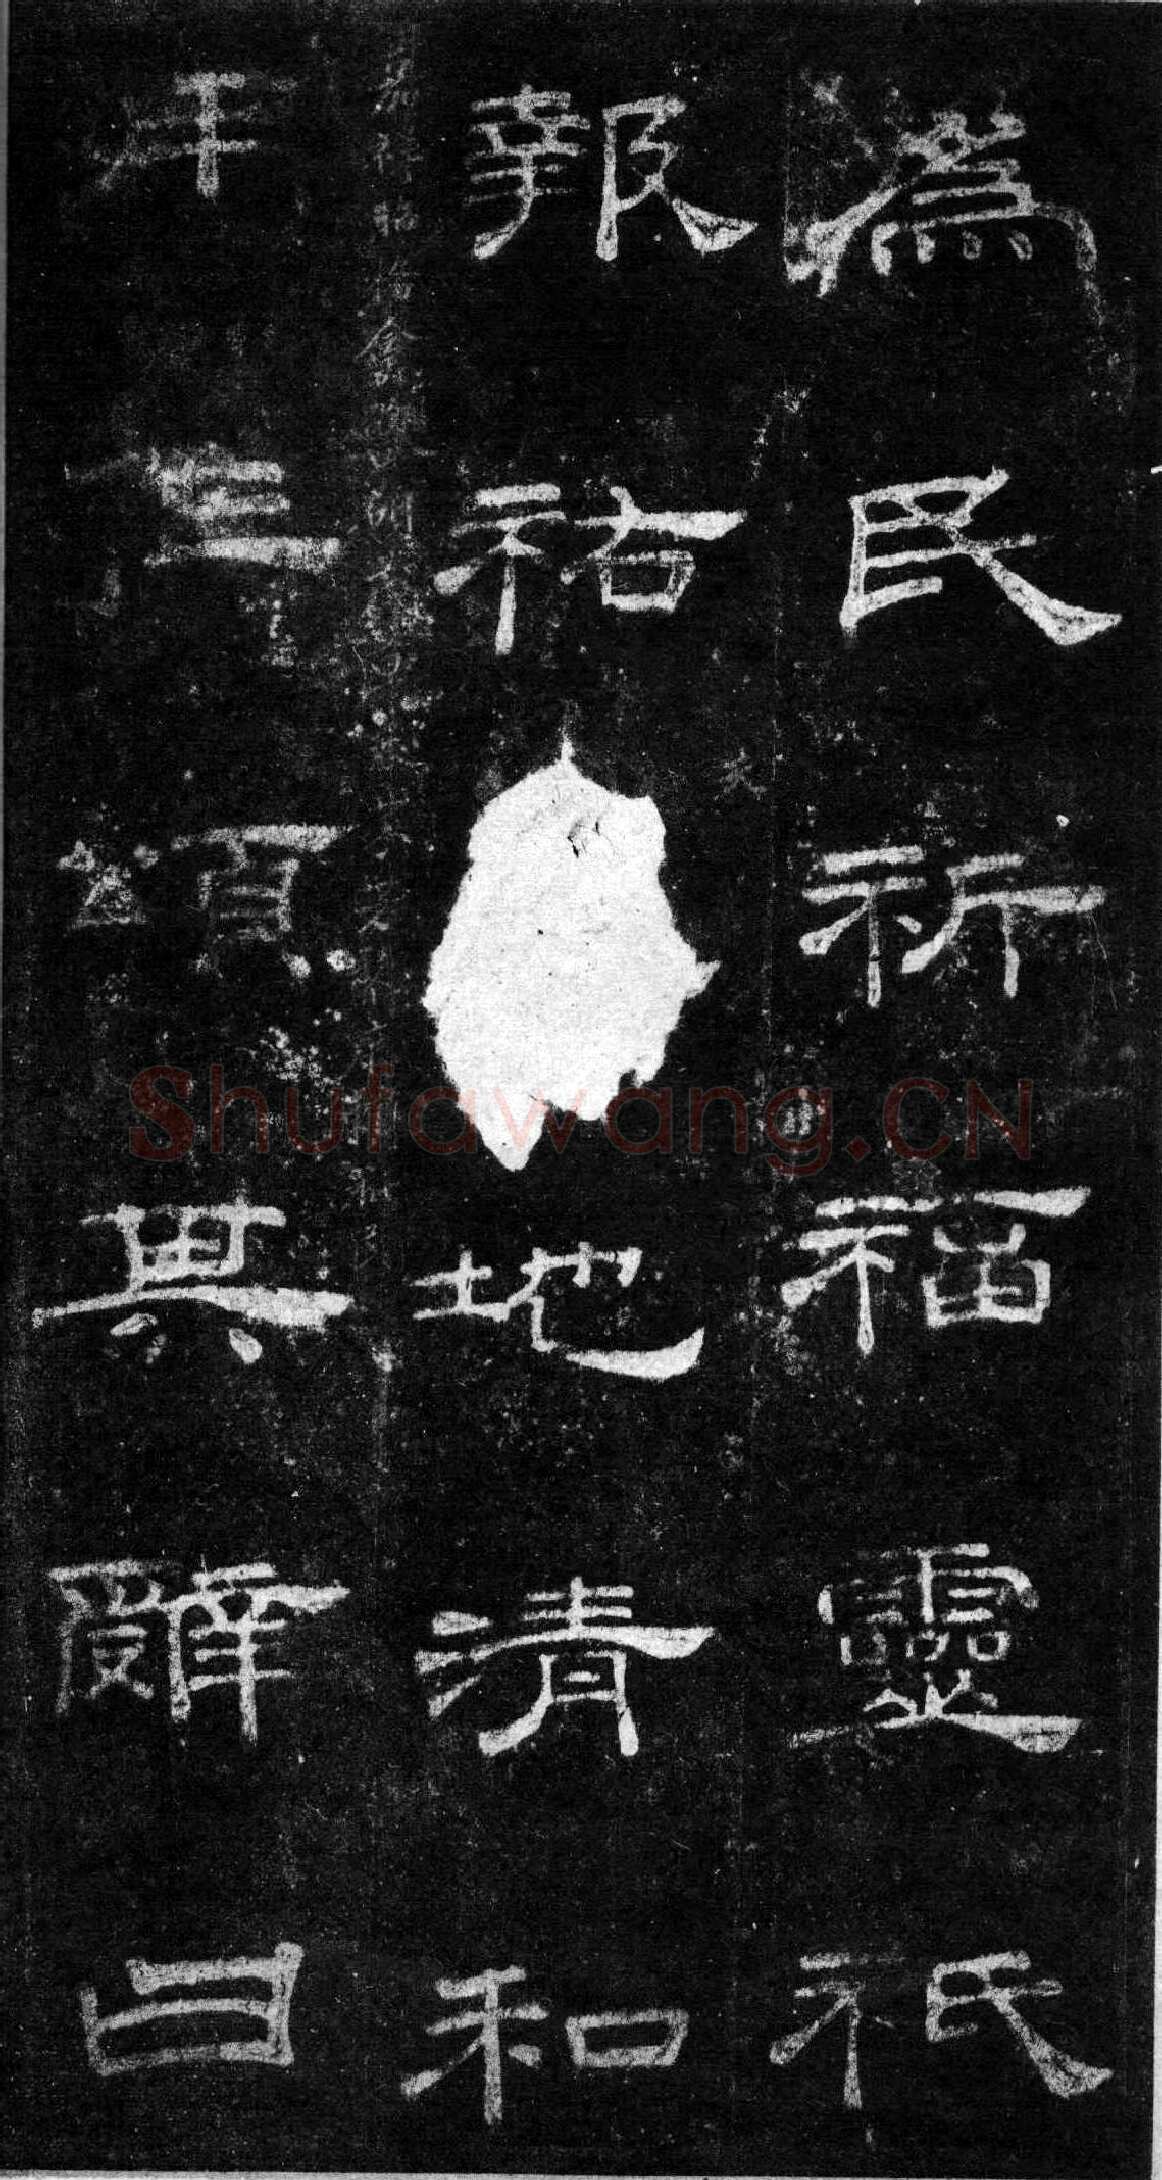 為民祈福靈祇
報祐地清和
頌其辭曰
Shufawang.CN